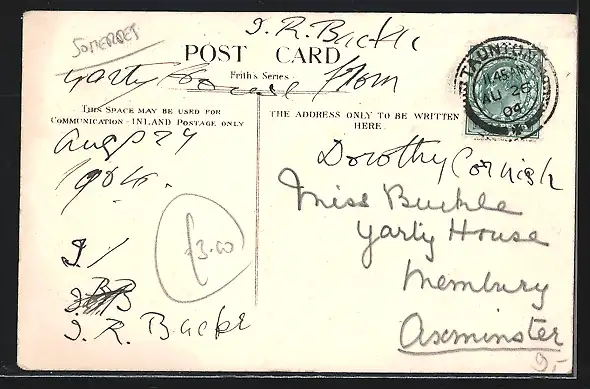 SOMERSET
J. R. Buckle
POST CARD
Yarty House from
Frith's Series
THIS SPACE MAY BE USED FOR
COMMUNICATION - INLAND POSTAGE ONLY
THE ADDRESS ONLY TO BE WRITTEN
HERE.
TAUNTON
11.45 AM
AU 26
04
Aug 24
1904.
£3.00
J. R. Buckle
Dorothy Cornish
Miss Buckle
Yarty House
Membury
Axminster
9,-